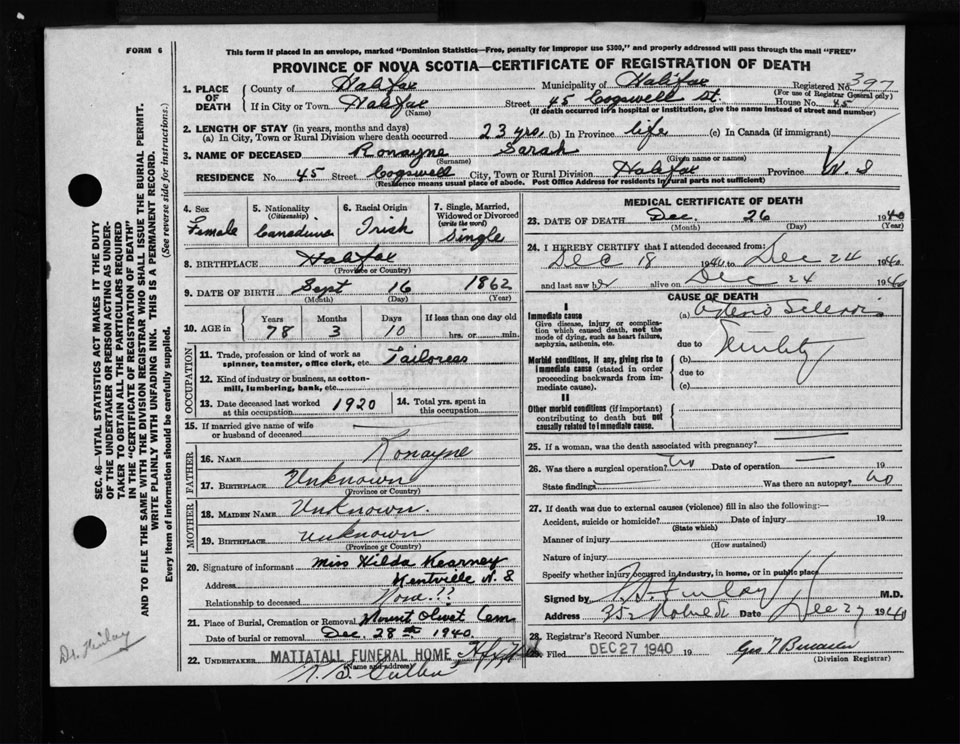 FORM 6
This form if placed in an envelope, marked "Dominion Statistics—Free, penalty for improper use $300," and properly addressed will pass through the mail "FREE"
PROVINCE OF NOVA SCOTIA—CERTIFICATE OF REGISTRATION OF DEATH
1. PLACE OF DEATH
County of Halifax Municipality of Halifax Registered No. 397
(For use of Registrar General only)
If in City or Town Halifax Street 45 Cogswell St. House No. 45
(Name) (If death occurred in a hospital or institution, give the name instead of street and number)
2. LENGTH OF STAY (in years, months and days)
(a) In City, Town or Rural Division where death occurred 23 yrs. (b) In Province life (c) In Canada (if immigrant)
3. NAME OF DECEASED Ronayne Sarah
(Surname) (Given name or names)
RESIDENCE No. 45 Street Cogswell City, Town or Rural Division Halifax Province N. S
(Residence means usual place of abode. Post Office Address for residents in rural parts not sufficient)
4. Sex
Female
5. Nationality
(Citizenship)
Canadian
6. Racial Origin
Irish
7. Single, Married, Widowed or Divorced
(write the word)
Single
8. BIRTHPLACE Halifax
(Province or Country)
9. DATE OF BIRTH Sept 16 1862
(Month) (Day) (Year)
10. AGE in
Years Months Days If less than one day old
78 3 10 hrs. or min.
OCCUPATION
11. Trade, profession or kind of work as spinner, teamster, office clerk, etc. Tailoress
12. Kind of industry or business, as cotton-mill, lumbering, bank, etc.
13. Date deceased last worked at this occupation 1920
14. Total yrs. spent in this occupation
15. If married give name of wife or husband of deceased
FATHER
16. NAME Ronayne
17. BIRTHPLACE Unknown
(Province or Country)
MOTHER
18. MAIDEN NAME Unknown.
19. BIRTHPLACE Unknown
(Province or Country)
20. Signature of informant Miss Hilda Kearney
Address Kentville N. S
Relationship to deceased None??
21. Place of Burial, Cremation or Removal Mount Olivet Cem
Date of burial or removal Dec. 28 1940.
22. UNDERTAKER MATTATALL FUNERAL HOME
(Name and address)
MEDICAL CERTIFICATE OF DEATH
23. DATE OF DEATH Dec. 26 1940
(Month) (Day) (Year)
24. I HEREBY CERTIFY that I attended deceased from:
Dec 18 1940 to Dec 24 1940
and last saw her alive on Dec 24 1940
CAUSE OF DEATH
I
Immediate cause
Give disease, injury or complication which caused death, not the mode of dying, such as heart failure, asphyxia, asthenia, etc.
(a)
due to
Morbid conditions, if any, giving rise to immediate cause (stated in order proceeding backwards from immediate cause).
(b) Senility
due to
(c)
II
Other morbid conditions (if important) contributing to death but not causally related to immediate cause.
25. If a woman, was the death associated with pregnancy?
26. Was there a surgical operation? no Date of operation 19
State findings Was there an autopsy? no
27. If death was due to external causes (violence) fill in also the following:—
Accident, suicide or homicide? Date of injury 19
(State which)
Manner of injury
(How sustained)
Nature of injury
Specify whether injury occurred in industry, in home, or in public place
Signed by Finlay M.D.
Address 352 Date Dec 27 1940
28. Registrar's Record Number
Filed DEC 27 1940 19
(Division Registrar)
SEC. 46—VITAL STATISTICS ACT MAKES IT THE DUTY
OF THE UNDERTAKER OR PERSON ACTING AS UNDER-
TAKER TO OBTAIN ALL THE PARTICULARS REQUIRED
IN THE "CERTIFICATE OF REGISTRATION OF DEATH"
AND TO FILE THE SAME WITH THE DIVISION REGISTRAR WHO SHALL ISSUE THE BURIAL PERMIT.
WRITE PLAINLY WITH UNFADING INK. THIS IS A PERMANENT RECORD.
Every item of information should be carefully supplied. (See reverse side for instructions.)
Dr. Finlay